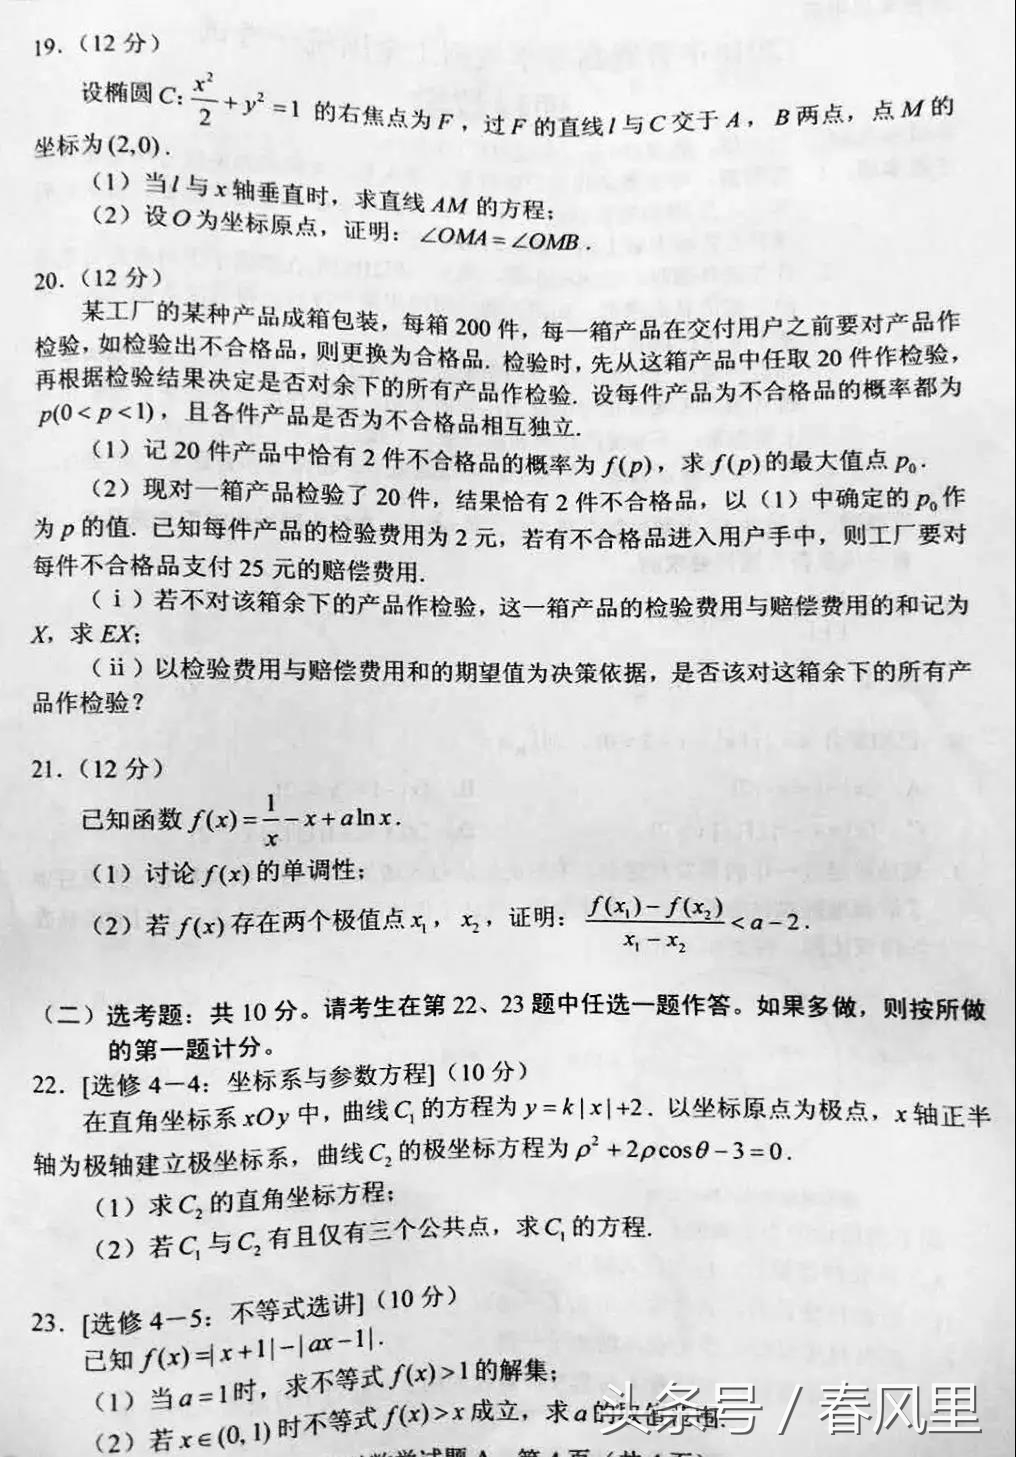 19.（12 分）
设椭圆 C: x²/2 + y² = 1 的右焦点为 F，过 F 的直线 l 与 C 交于 A，B 两点，点 M 的
坐标为 (2,0).
（1）当 l 与 x 轴垂直时，求直线 AM 的方程；
（2）设 O 为坐标原点，证明：∠OMA = ∠OMB.
20.（12 分）
某工厂的某种产品成箱包装，每箱 200 件，每一箱产品在交付用户之前要对产品作
检验，如检验出不合格品，则更换为合格品. 检验时，先从这箱产品中任取 20 件作检验，
再根据检验结果决定是否对余下的所有产品作检验. 设每件产品为不合格品的概率都为
p(0 < p < 1)，且各件产品是否为不合格品相互独立.
（1）记 20 件产品中恰有 2 件不合格品的概率为 f(p)，求 f(p) 的最大值点 p₀.
（2）现对一箱产品检验了 20 件，结果恰有 2 件不合格品，以（1）中确定的 p₀ 作
为 p 的值. 已知每件产品的检验费用为 2 元，若有不合格品进入用户手中，则工厂要对
每件不合格品支付 25 元的赔偿费用.
（i）若不对该箱余下的产品作检验，这一箱产品的检验费用与赔偿费用的和记为
X，求 EX；
（ii）以检验费用与赔偿费用和的期望值为决策依据，是否该对这箱余下的所有产
品作检验？
21.（12 分）
已知函数 f(x) = 1/x − x + a ln x.
（1）讨论 f(x) 的单调性；
（2）若 f(x) 存在两个极值点 x₁，x₂，证明：(f(x₁) − f(x₂))/(x₁ − x₂) < a − 2.
（二）选考题：共 10 分。请考生在第 22、23 题中任选一题作答。如果多做，则按所做
的第一题计分。
22. [选修 4－4：坐标系与参数方程]（10 分）
在直角坐标系 xOy 中，曲线 C₁ 的方程为 y = k|x| + 2. 以坐标原点为极点，x 轴正半
轴为极轴建立极坐标系，曲线 C₂ 的极坐标方程为 ρ² + 2ρcosθ − 3 = 0.
（1）求 C₂ 的直角坐标方程；
（2）若 C₁ 与 C₂ 有且仅有三个公共点，求 C₁ 的方程.
23. [选修 4－5：不等式选讲]（10 分）
已知 f(x) = |x + 1| − |ax − 1|.
（1）当 a = 1 时，求不等式 f(x) > 1 的解集；
（2）若 x ∈ (0, 1) 时不等式 f(x) > x 成立，求 a 的取值范围.
头条号 / 春风里